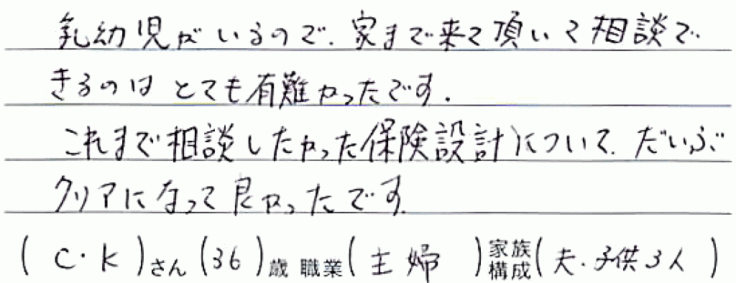 乳幼児がいるので、家まで来て頂いて相談で
きるのは とても有難かったです。
これまで相談したかった保険設計について、だいぶ
クリアになって良かったです。
( C・K )さん (36)歳 職業(主婦 )家族構成(夫・子供3人 )